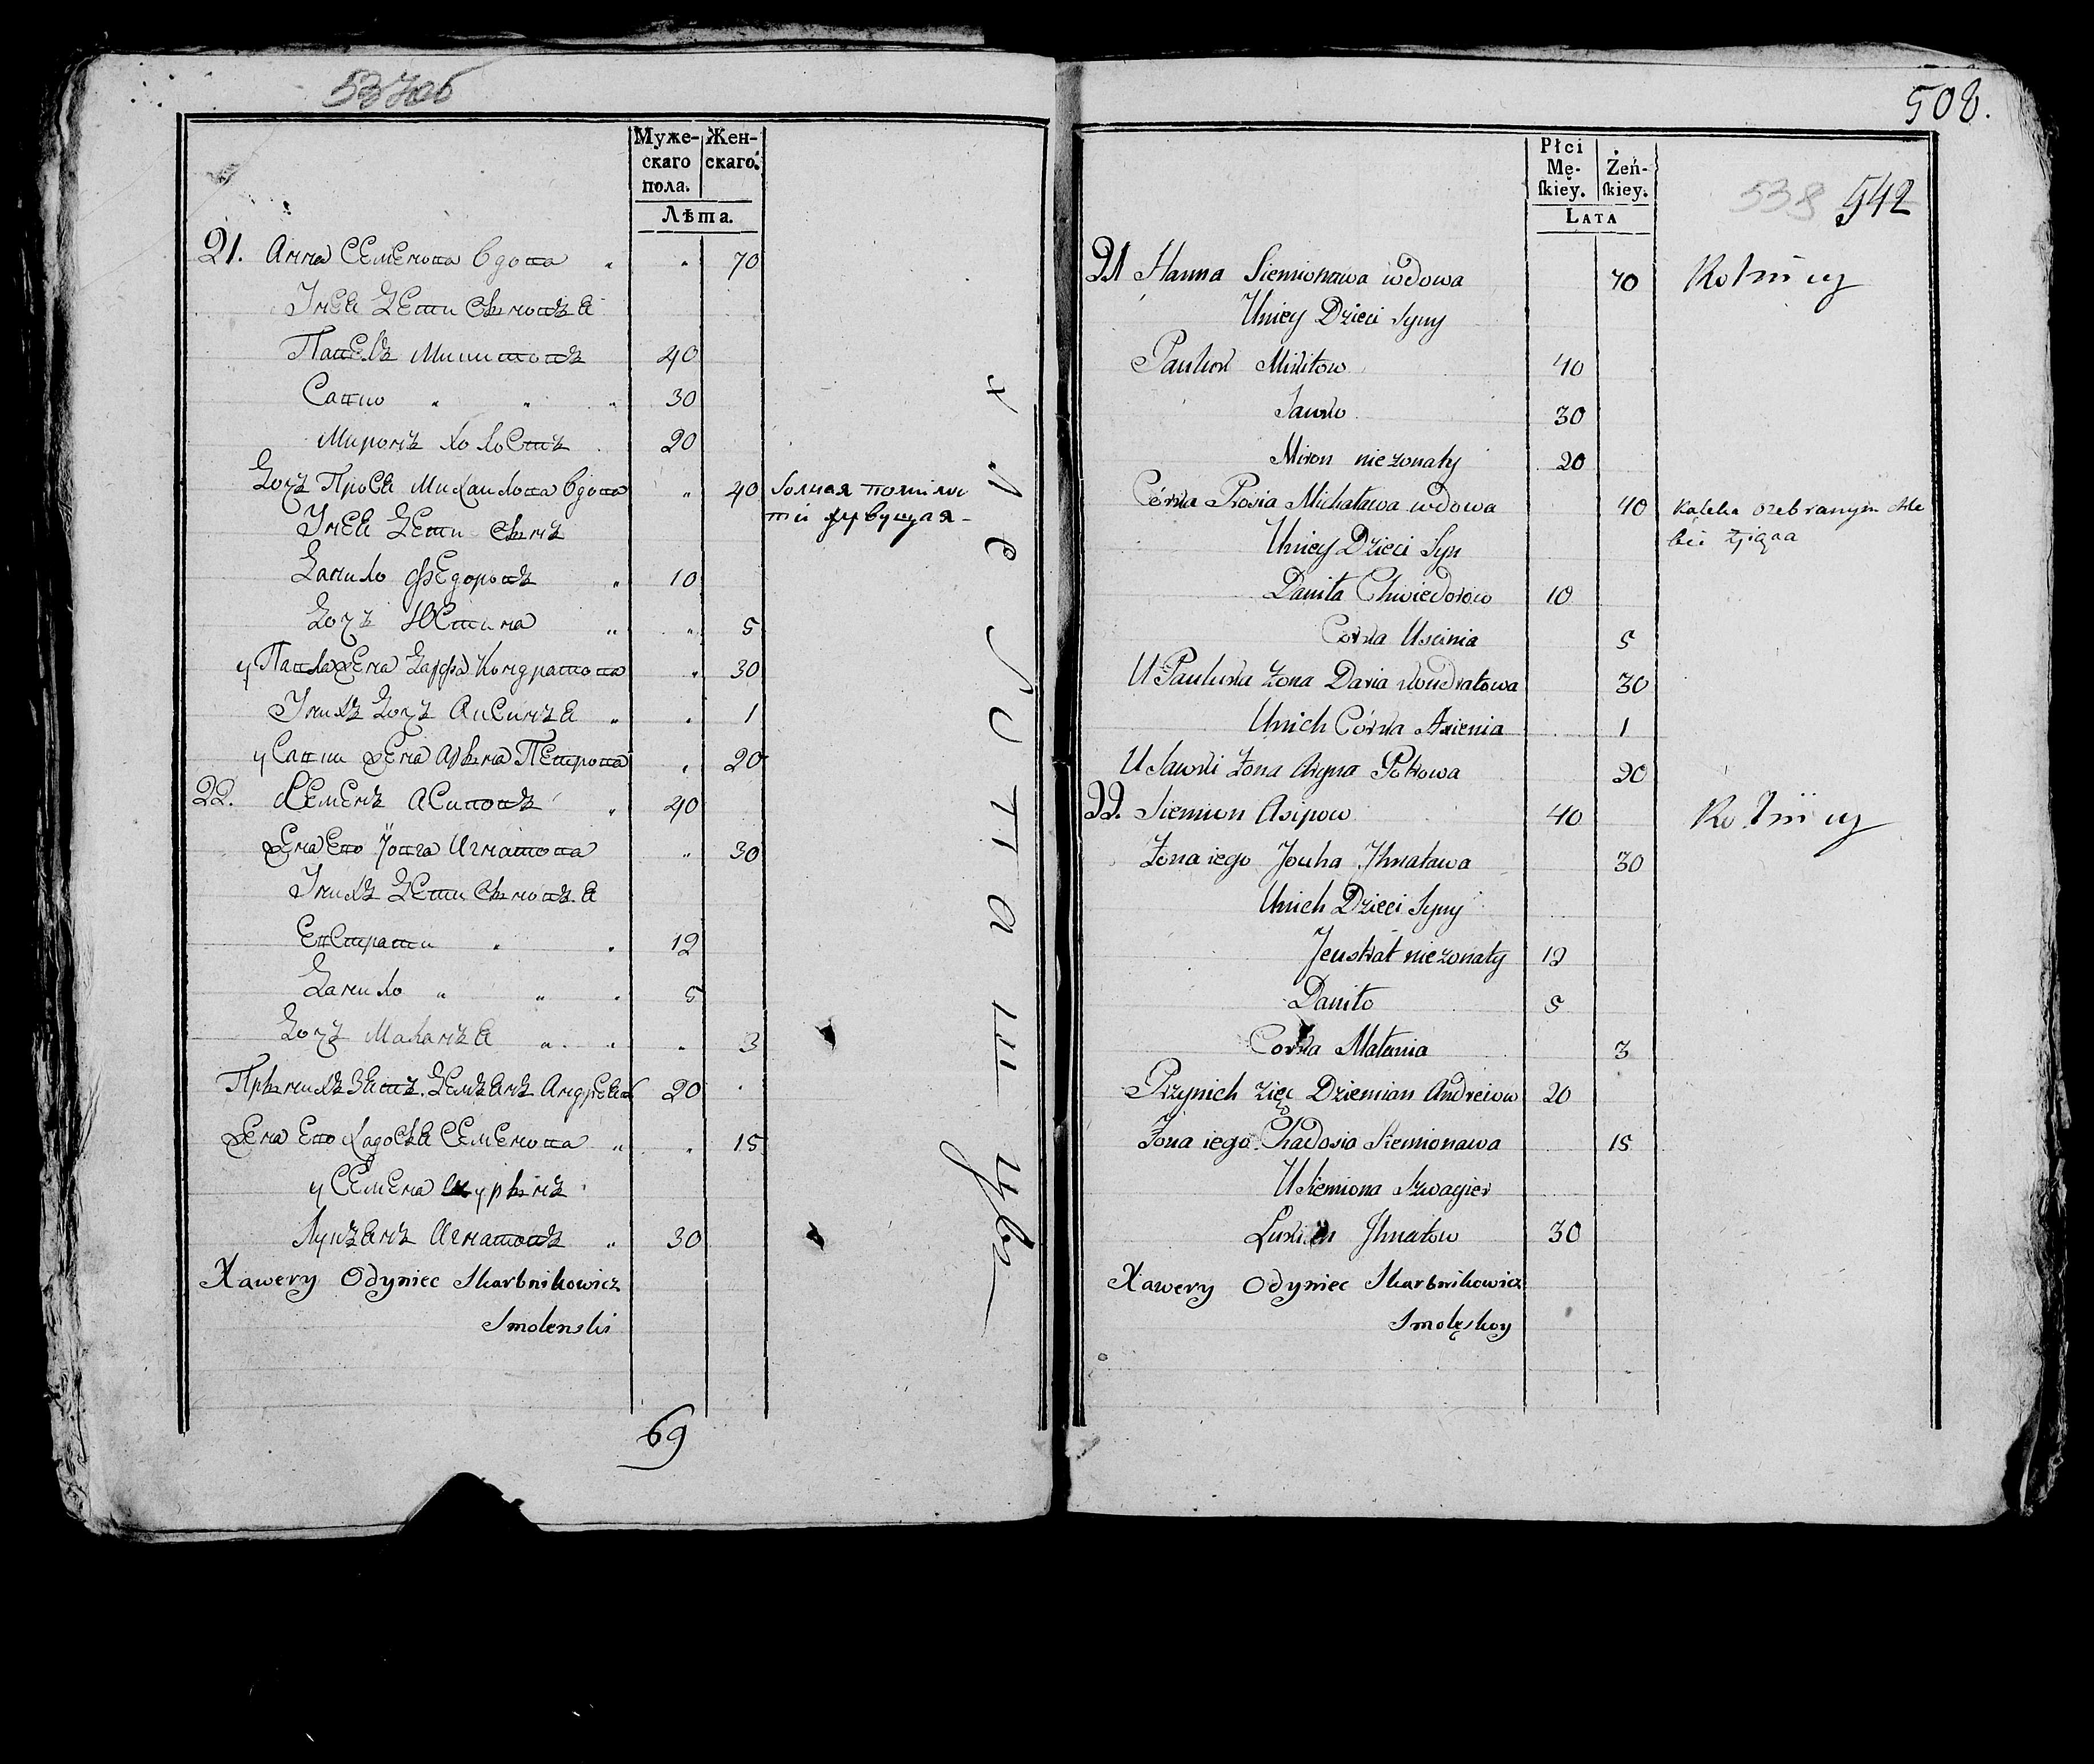 537об
Муже-
скаго
пола.
Жен-
скаго.
Лѣта.
21. Анна Семенова вдова " " 70
У нея дети сыновья
Павелъ Микитовъ 40
Савко " " " 30
Миронъ холостъ 20
Дочь Прося Михайлова вдова " 40
У нея дети сынъ
Данило Федоровъ " 10
Дочь Юстина " " 5
у Павла жена Дарья Кондратова " 30
У нихъ дочь Аксинья " " 1
у Савки жена Арына Петрова " 20
22. Семенъ Асиповъ " 40
Жена его Йовга Игнатова " 30
У нихъ дети сыновья
Евстрати " " 12
Данило " " " 5
Дочь Маланья " " " 3
Прынихъ зять Демьянъ Андреевъ 20
Жена его Хадосья Семенова " " 15
у Семена шурынъ
Лукьянъ Игнатовъ " 30
Xawery Odyniec Skarbnikowicz
Smolenski
69
хлебопашцы
508.
Płci
Mę-
skiey.
Żeń-
skiey.
LATA
538 542
21 Hanna Siemionawa wdowa 70 Rolnicy
Uniey Dzieci Syny
Pauluk Mikitow 40
Sawko 30
Miron niezonaty 20
Córka Prosia Michaława wdowa 40 Kaleka
Uniey Dzieci Syn
Daniła Chwiedorow 10
Corka Uscinia 5
U Pauluka żona Daria Kondratowa 30
Unich Córka Axienia 1
U Sawki żona Aryna Petrowa 20
22. Siemion Asipow 40 Rolnicy
Żona iego Jouha Jhnatawa 30
Unich Dzieci Syny
Jeustrat niezonaty 12
Daniło 5
Corka Małania 3
Przynich zięć Dziemian Andreiow 20
Żona iego Chadosia Siemionawa 15
U Siemiona Szwagier
Łukian Jhnatow 30
Xawery Odyniec Skarbnikowicz
Smolęskoy